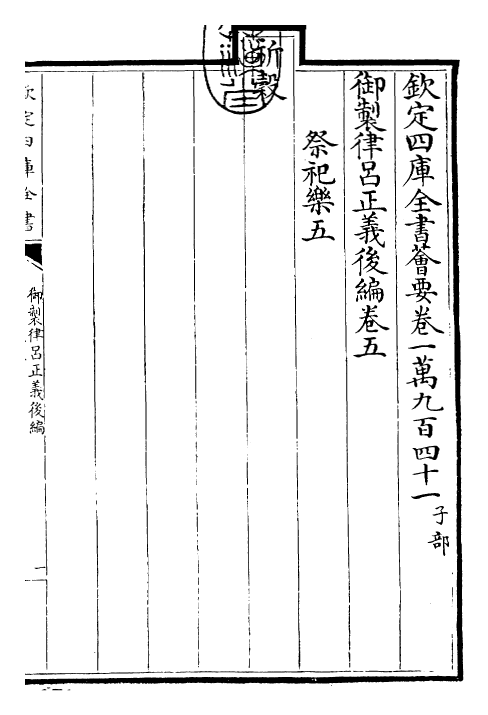 欽定四庫全書薈要卷一萬九百四十一子部
御製律呂正義後編卷五
祭祀樂五
祈穀
欽定四庫全書
御製律呂正義後編
一